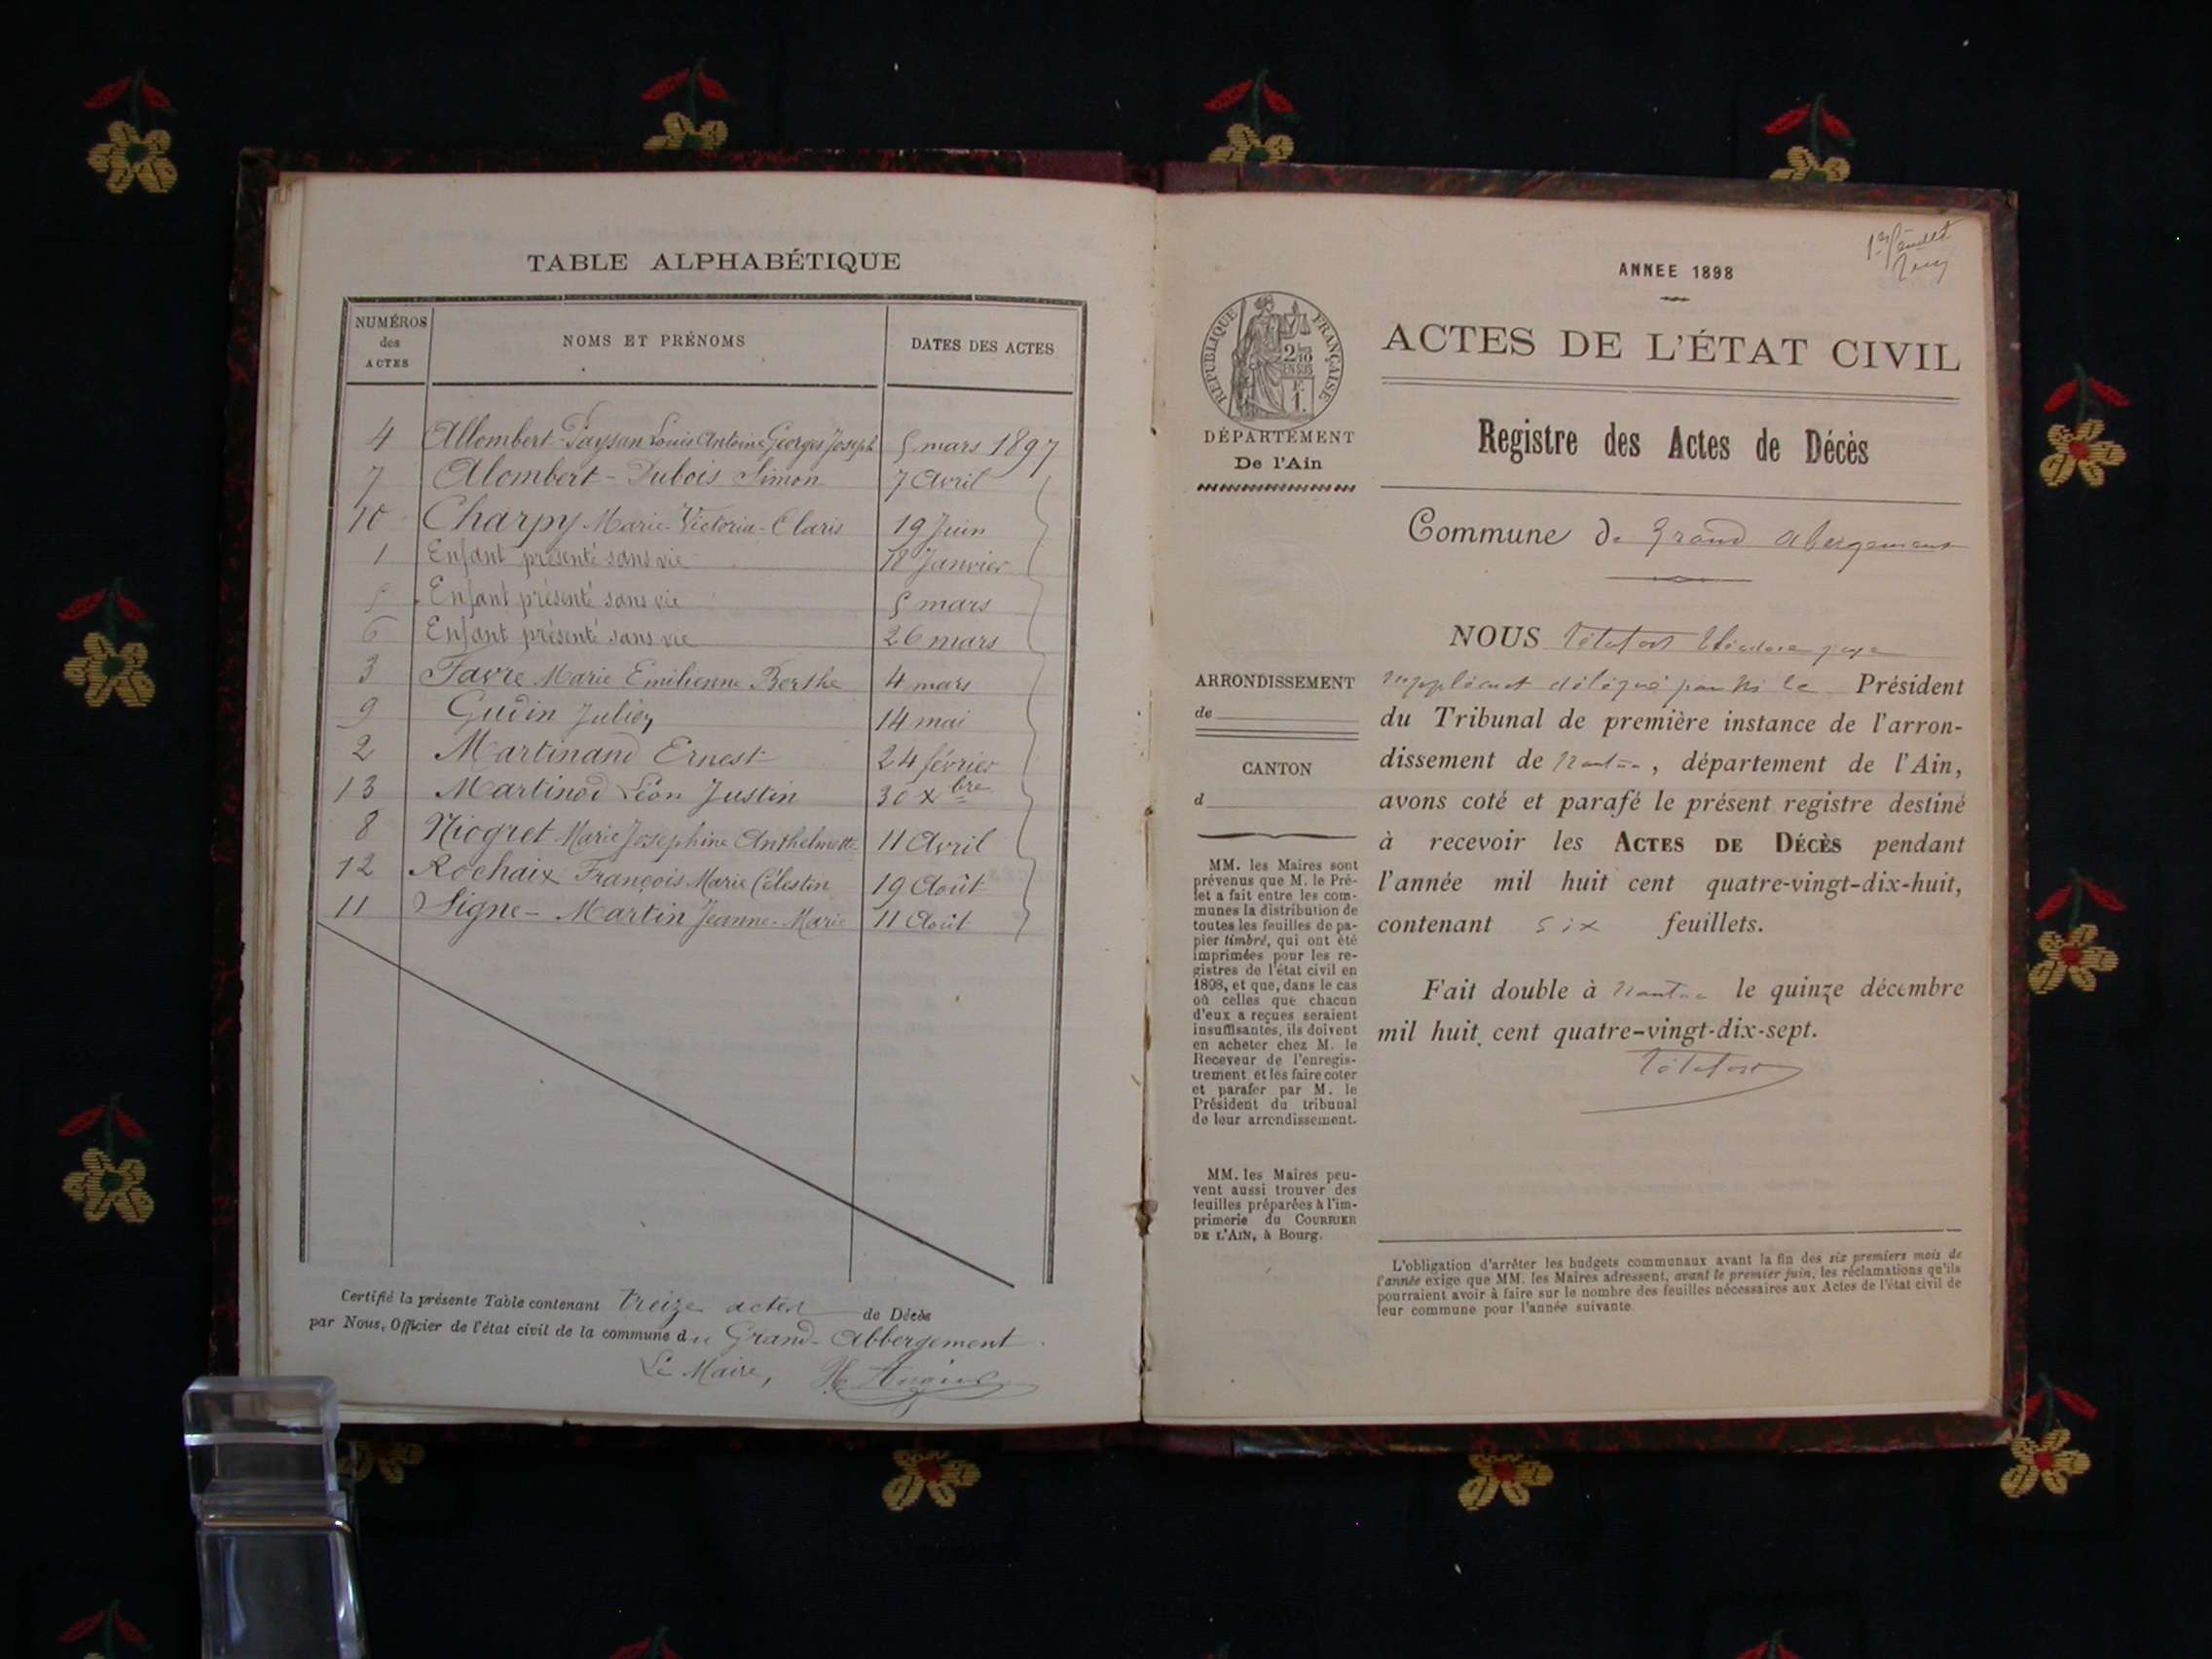 TABLE ALPHABÉTIQUE
NUMÉROS des ACTES | NOMS ET PRÉNOMS | DATES DES ACTES
4 Allombert-Paysan Louis Antoine Georges Joseph 5 mars 1897
7 Alombert-Dubois Simon 7 Avril
10 Charpy Marie-Victoria-Claris 19 Juin
1 Enfant présenté sans vie 18 Janvier
5 Enfant présenté sans vie 5 mars
6 Enfant présenté sans vie 26 mars
3 Favre Marie Emilienne Berthe 4 mars
9 Gudin Julien 14 mai
2 Martinand Ernest 24 février
13 Martinod Léon Justin 30 Xbre
8 Niogret Marie Josephine Anthelmette 11 Avril
12 Rochaix François Marie Célestin 19 Août
11 Signe-Martin Jeanne-Marie 11 Août
Certifié la présente Table contenant treize actes de Décès
par Nous, Officier de l'état civil de la commune du Grand-Abbergement
Le Maire,
ANNEE 1898
RÉPUBLIQUE FRANÇAISE
2/10
EN SUS
F.
1.
DÉPARTEMENT
De l'Ain
ARRONDISSEMENT
de
CANTON
d
MM. les Maires sont
prévenus que M. le Pré-
fet a fait entre les com-
munes la distribution de
toutes les feuilles de pa-
pier timbré, qui ont été
imprimées pour les re-
gistres de l'état civil en
1898, et que, dans le cas
où celles que chacun
d'eux a reçues seraient
insuffisantes, ils doivent
en acheter chez M. le
Receveur de l'enregis-
trement et les faire coter
et parafer par M. le
Président du tribunal
de leur arrondissement.
MM. les Maires peu-
vent aussi trouver des
feuilles préparées à l'im-
primerie du COURRIER
DE L'AIN, à Bourg.
ACTES DE L'ÉTAT CIVIL
Registre des Actes de Décès
Commune de Grand Abergement
NOUS Tétafort Théodore juge
suppléant délégué par Mr le Président
du Tribunal de première instance de l'arron-
dissement de Nantua, département de l'Ain,
avons coté et parafé le présent registre destiné
à recevoir les ACTES DE DÉCÈS pendant
l'année mil huit cent quatre-vingt-dix-huit,
contenant six feuillets.
Fait double à Nantua le quinze décembre
mil huit cent quatre-vingt-dix-sept.
Tétafort
L'obligation d'arrêter les budgets communaux avant la fin des six premiers mois de
l'année exige que MM. les Maires adressent, avant le premier juin, les réclamations qu'ils
pourraient avoir à faire sur le nombre des feuilles nécessaires aux Actes de l'état civil de
leur commune pour l'année suivante.